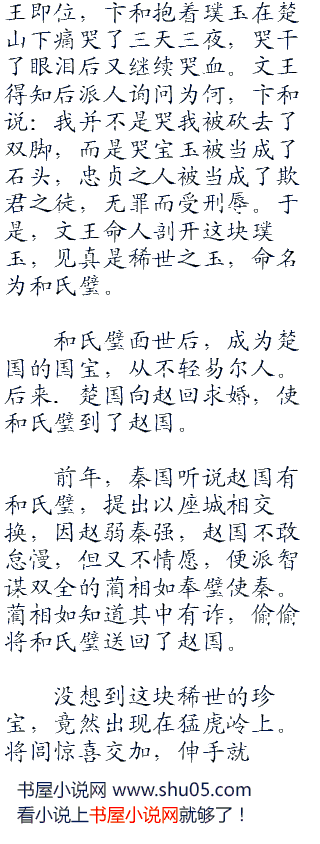 王即位，卞和抱着璞玉在楚
山下痛哭了三天三夜，哭干
了眼泪后又继续哭血。文王
得知后派人询问为何，卞和
说：我并不是哭我被砍去了
双脚，而是哭宝玉被当成了
石头，忠贞之人被当成了欺
君之徒，无罪而受刑辱。于
是，文王命人剖开这块璞
玉，见真是稀世之玉，命名
为和氏璧。
和氏璧面世后，成为楚
国的国宝，从不轻易尔人。
后来．楚国向赵回求婚，使
和氏璧到了赵国。
前年，秦国听说赵国有
和氏璧，提出以座城相交
换，因赵弱秦强，赵国不敢
怠慢，但又不情愿，便派智
谋双全的蔺相如奉璧使秦。
蔺相如知道其中有诈，偷偷
将和氏璧送回了赵国。
没想到这块稀世的珍
宝，竟然出现在猛虎岭上。
将闾惊喜交加，伸手就
书屋小说网 www.shu05.com
看小说上书屋小说网就够了！